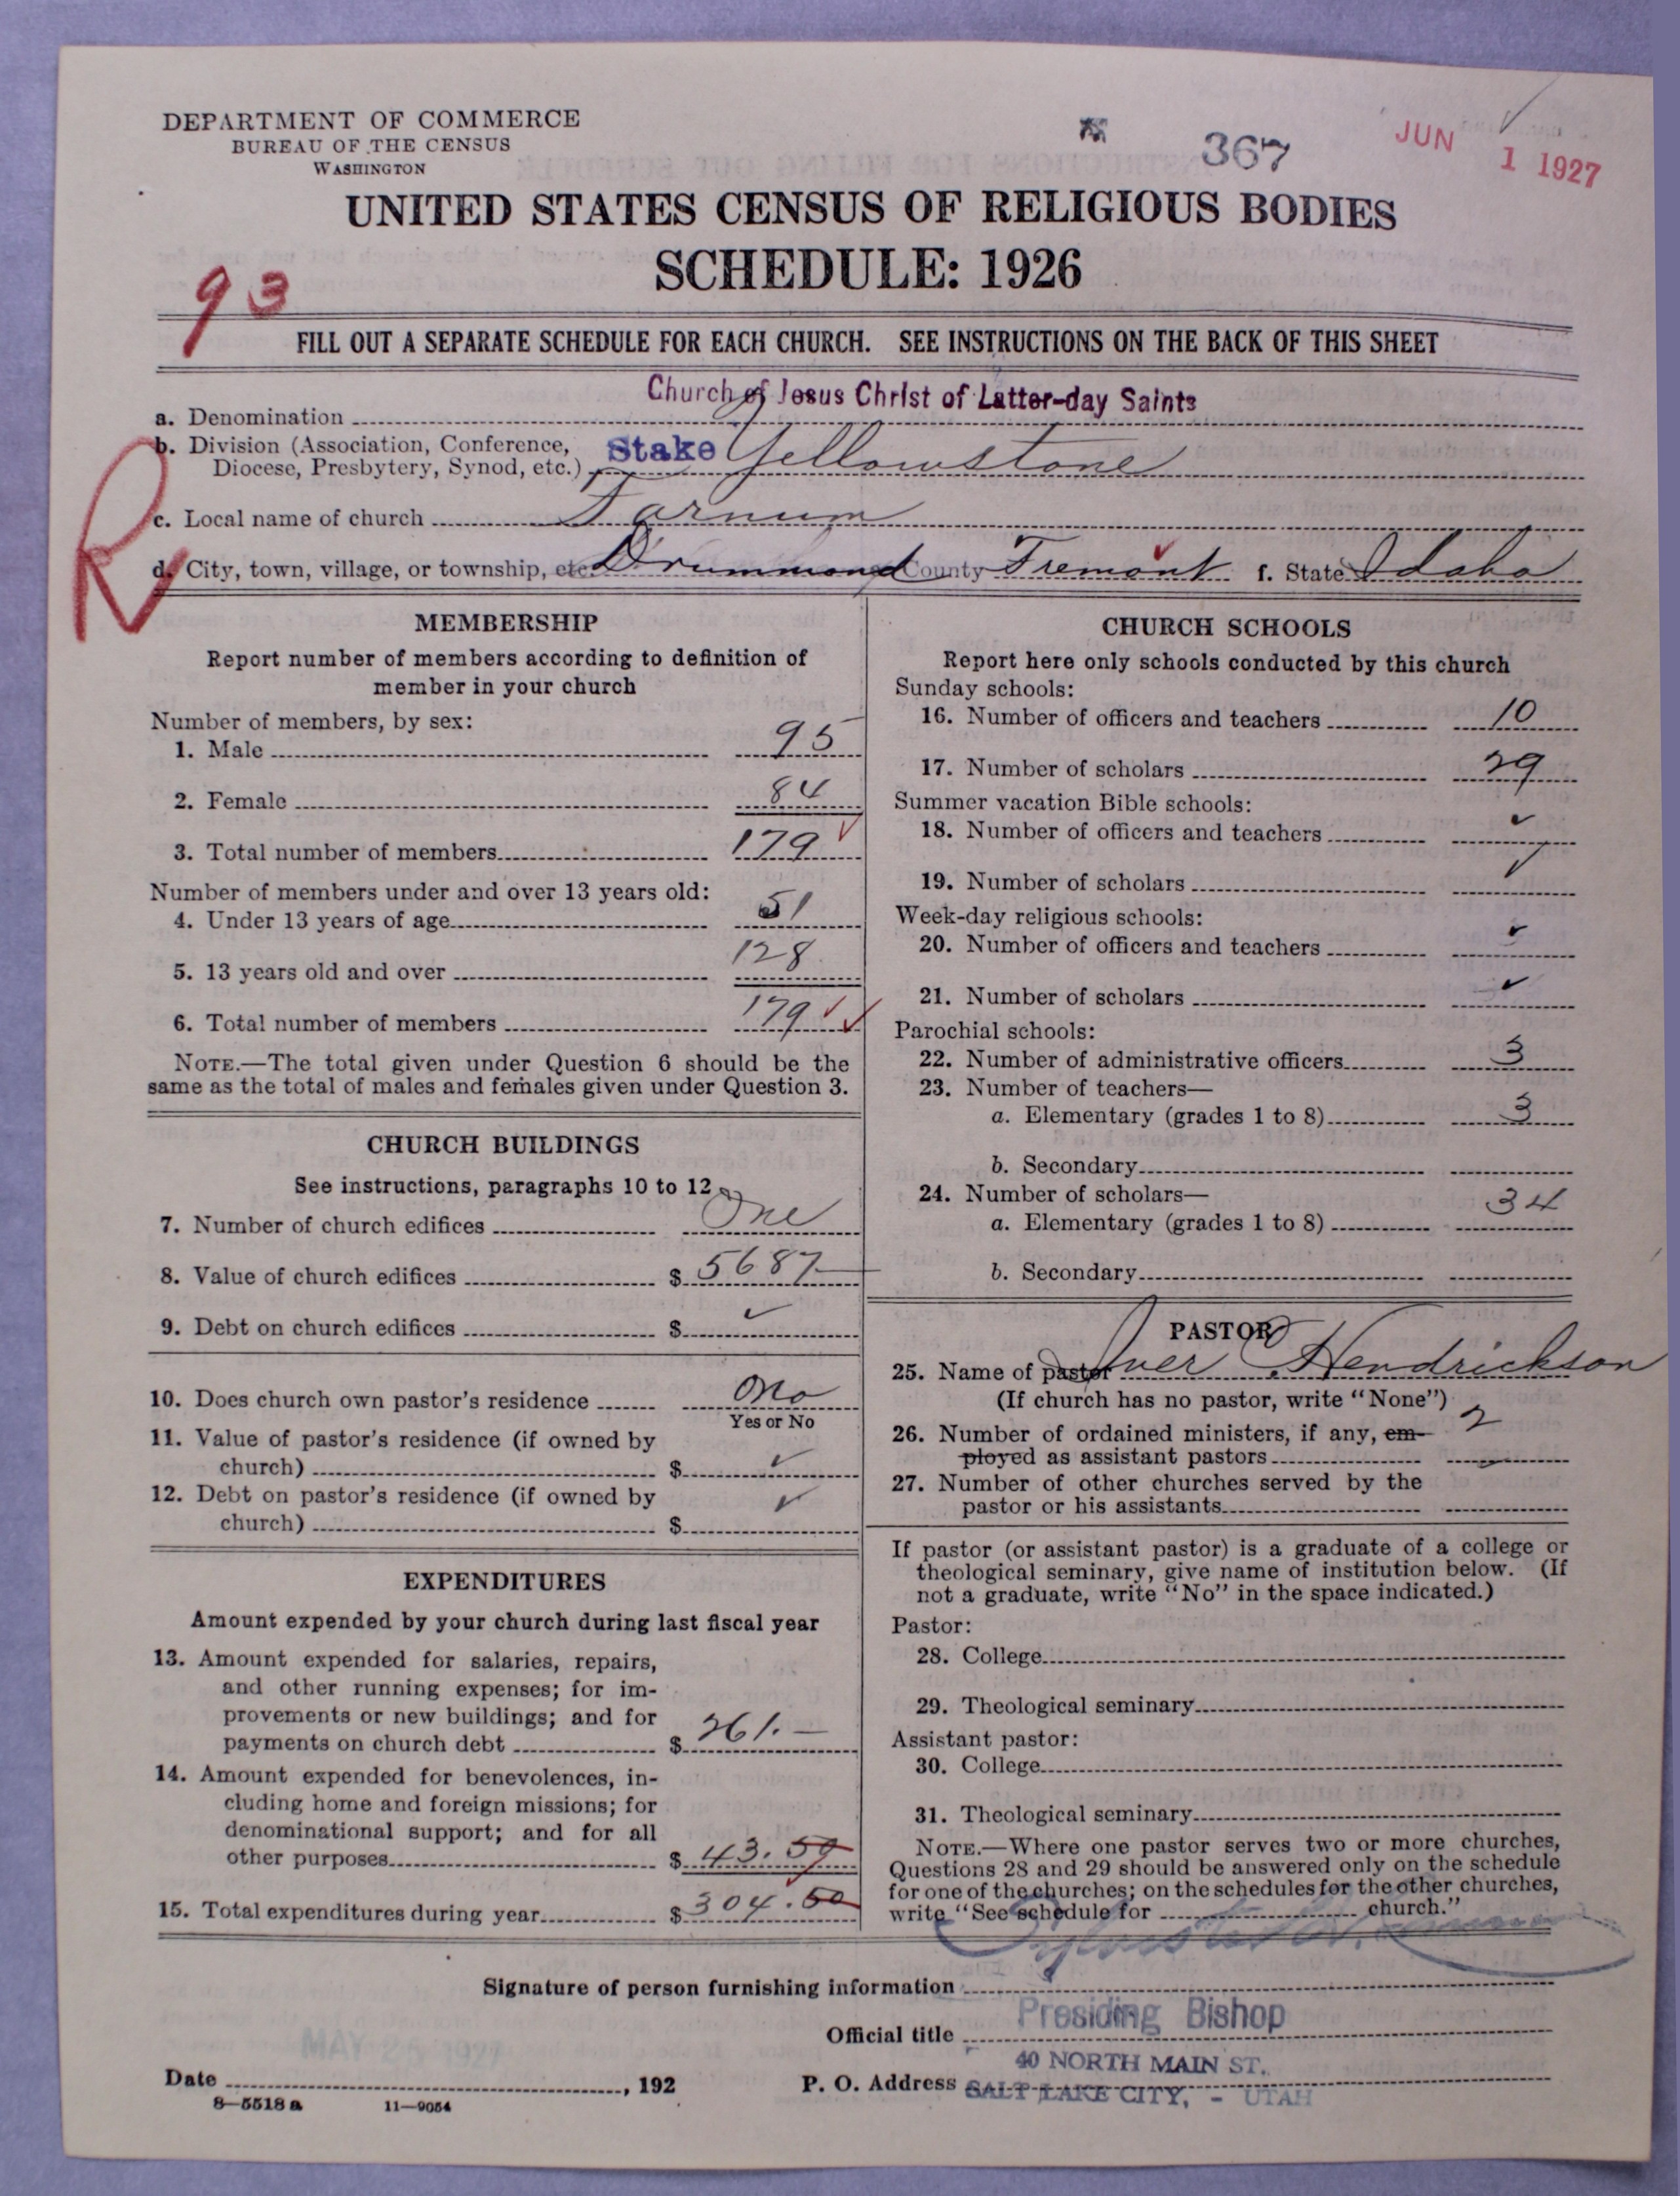 DEPARTMENT OF COMMERCE
BUREAU OF THE CENSUS
WASHINGTON
367
JUN 1 1927
UNITED STATES CENSUS OF RELIGIOUS BODIES
SCHEDULE: 1926
93
FILL OUT A SEPARATE SCHEDULE FOR EACH CHURCH. SEE INSTRUCTIONS ON THE BACK OF THIS SHEET
a. Denomination Church of Jesus Christ of Latter-day Saints
b. Division (Association, Conference, Diocese, Presbytery, Synod, etc.) Stake Yellowstone
R
c. Local name of church Farnum
d. City, town, village, or township, etc. Drummond County Fremont f. State Idaho
MEMBERSHIP
Report number of members according to definition of
member in your church
Number of members, by sex:
1. Male 95
2. Female 84
3. Total number of members 179
Number of members under and over 13 years old:
4. Under 13 years of age 51
5. 13 years old and over 128
6. Total number of members 179
NOTE.—The total given under Question 6 should be the
same as the total of males and females given under Question 3.
CHURCH BUILDINGS
See instructions, paragraphs 10 to 12
7. Number of church edifices One
8. Value of church edifices $ 5687—
9. Debt on church edifices $ ✓
10. Does church own pastor's residence no
Yes or No
11. Value of pastor's residence (if owned by
church) $ ✓
12. Debt on pastor's residence (if owned by
church) $ ✓
EXPENDITURES
Amount expended by your church during last fiscal year
13. Amount expended for salaries, repairs,
and other running expenses; for im-
provements or new buildings; and for
payments on church debt $ 261.—
14. Amount expended for benevolences, in-
cluding home and foreign missions; for
denominational support; and for all
other purposes $ 43.50
15. Total expenditures during year $ 304.50
CHURCH SCHOOLS
Report here only schools conducted by this church
Sunday schools:
16. Number of officers and teachers 10
17. Number of scholars 29
Summer vacation Bible schools:
18. Number of officers and teachers ✓
19. Number of scholars ✓
Week-day religious schools:
20. Number of officers and teachers ✓
21. Number of scholars ✓
Parochial schools:
22. Number of administrative officers 3
23. Number of teachers—
a. Elementary (grades 1 to 8) 3
b. Secondary
24. Number of scholars—
a. Elementary (grades 1 to 8) 34
b. Secondary
PASTOR
25. Name of pastor Iver E. Hendrickson
(If church has no pastor, write "None")
26. Number of ordained ministers, if any, em- 2
ployed as assistant pastors
27. Number of other churches served by the
pastor or his assistants
If pastor (or assistant pastor) is a graduate of a college or
theological seminary, give name of institution below. (If
not a graduate, write "No" in the space indicated.)
Pastor:
28. College
29. Theological seminary
Assistant pastor:
30. College
31. Theological seminary
NOTE.—Where one pastor serves two or more churches,
Questions 28 and 29 should be answered only on the schedule
for one of the churches; on the schedules for the other churches,
write "See schedule for church."
Signature of person furnishing information
Official title Presiding Bishop
40 NORTH MAIN ST.
Date MAY 25 1927, 192
P. O. Address SALT LAKE CITY, - UTAH
8—5518 a 11—9054